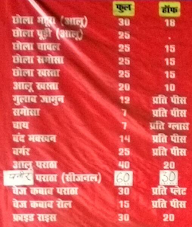 फुल हॉफ
छोला भटूरा (आलू) 30 18
छोला पूड़ी (आलू) 25 -
छोला चावल 25 15
छोला समोसा 25 15
छोला खस्ता 25 15
आलू खस्ता 20 10
गुलाब जामुन 12 प्रति पीस
समोसा 7 प्रति पीस
चाय 7 प्रति ग्लास
बंद मक्खन 14 प्रति पीस
बर्गर 25 प्रति पीस
आलू पराठा 40 20
पनीर पराठा (सीजनल) 60 50
वेज कबाब पराठा 30 प्रति प्लेट
वेज कबाब रोल 15 प्रति पीस
फ्राइड राइस 30 20